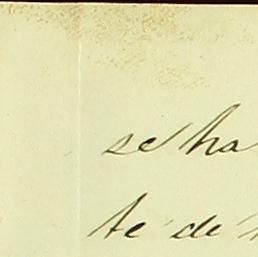 se ha
te de